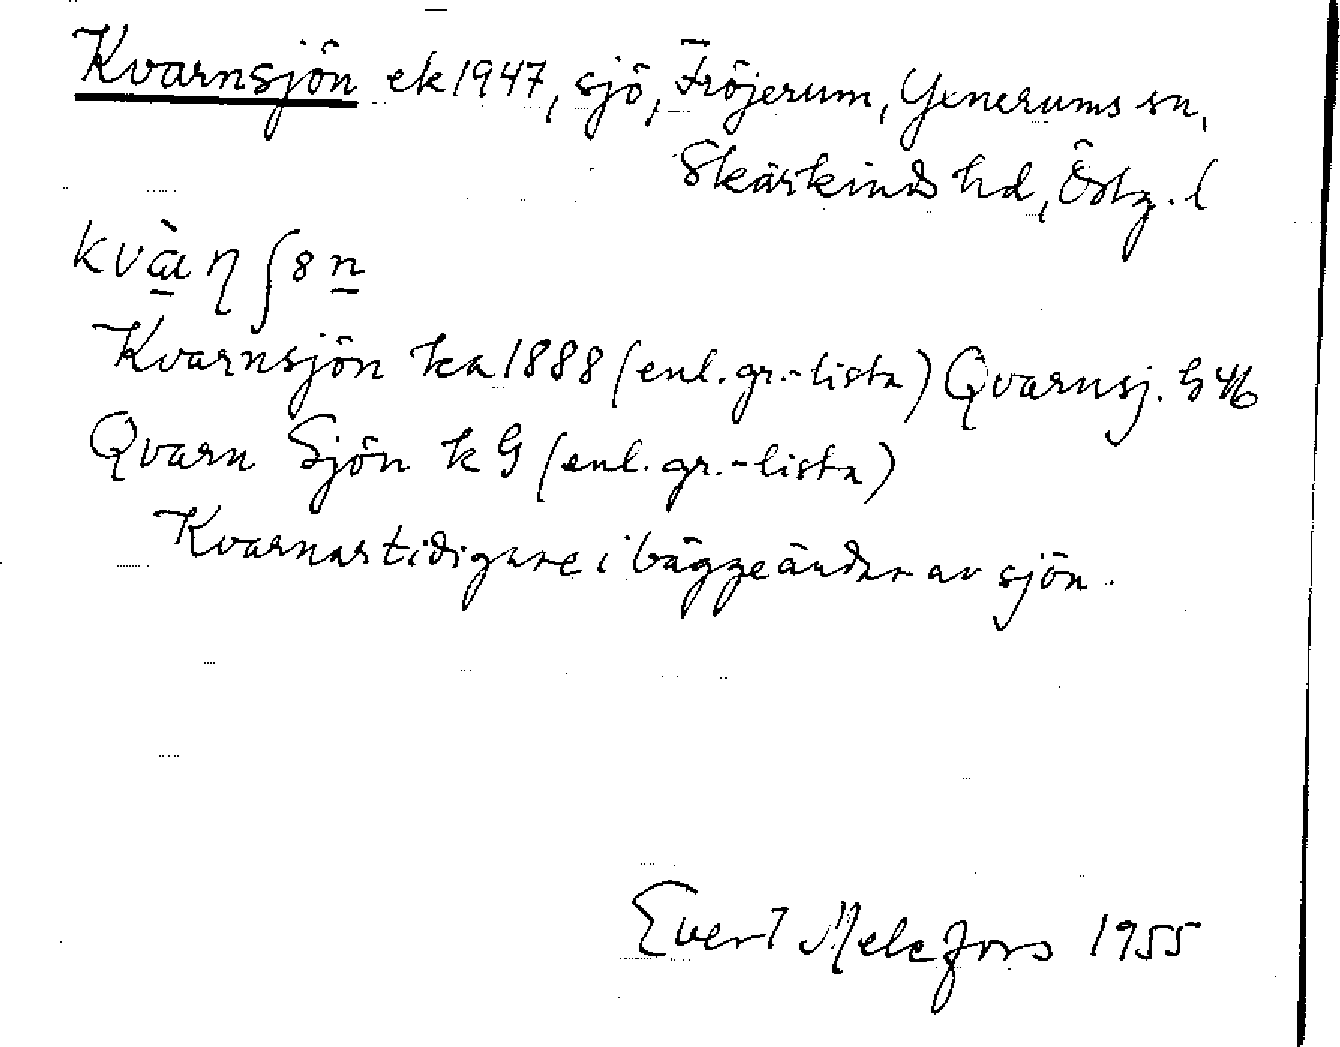 Kvarnsjön ek 1947, sjö, Fröjerum, Yxnerums sn,
Skärkinds hd, Östg. l
Kvarnsjön ka 1888 (enl. gr.-lista) Qvarnsj. h 46
Qvarn Sjön k G (enl. gr.-lista)
Kvarnar tidigare i bägge ändar av sjön.
Evert Melefors 1955